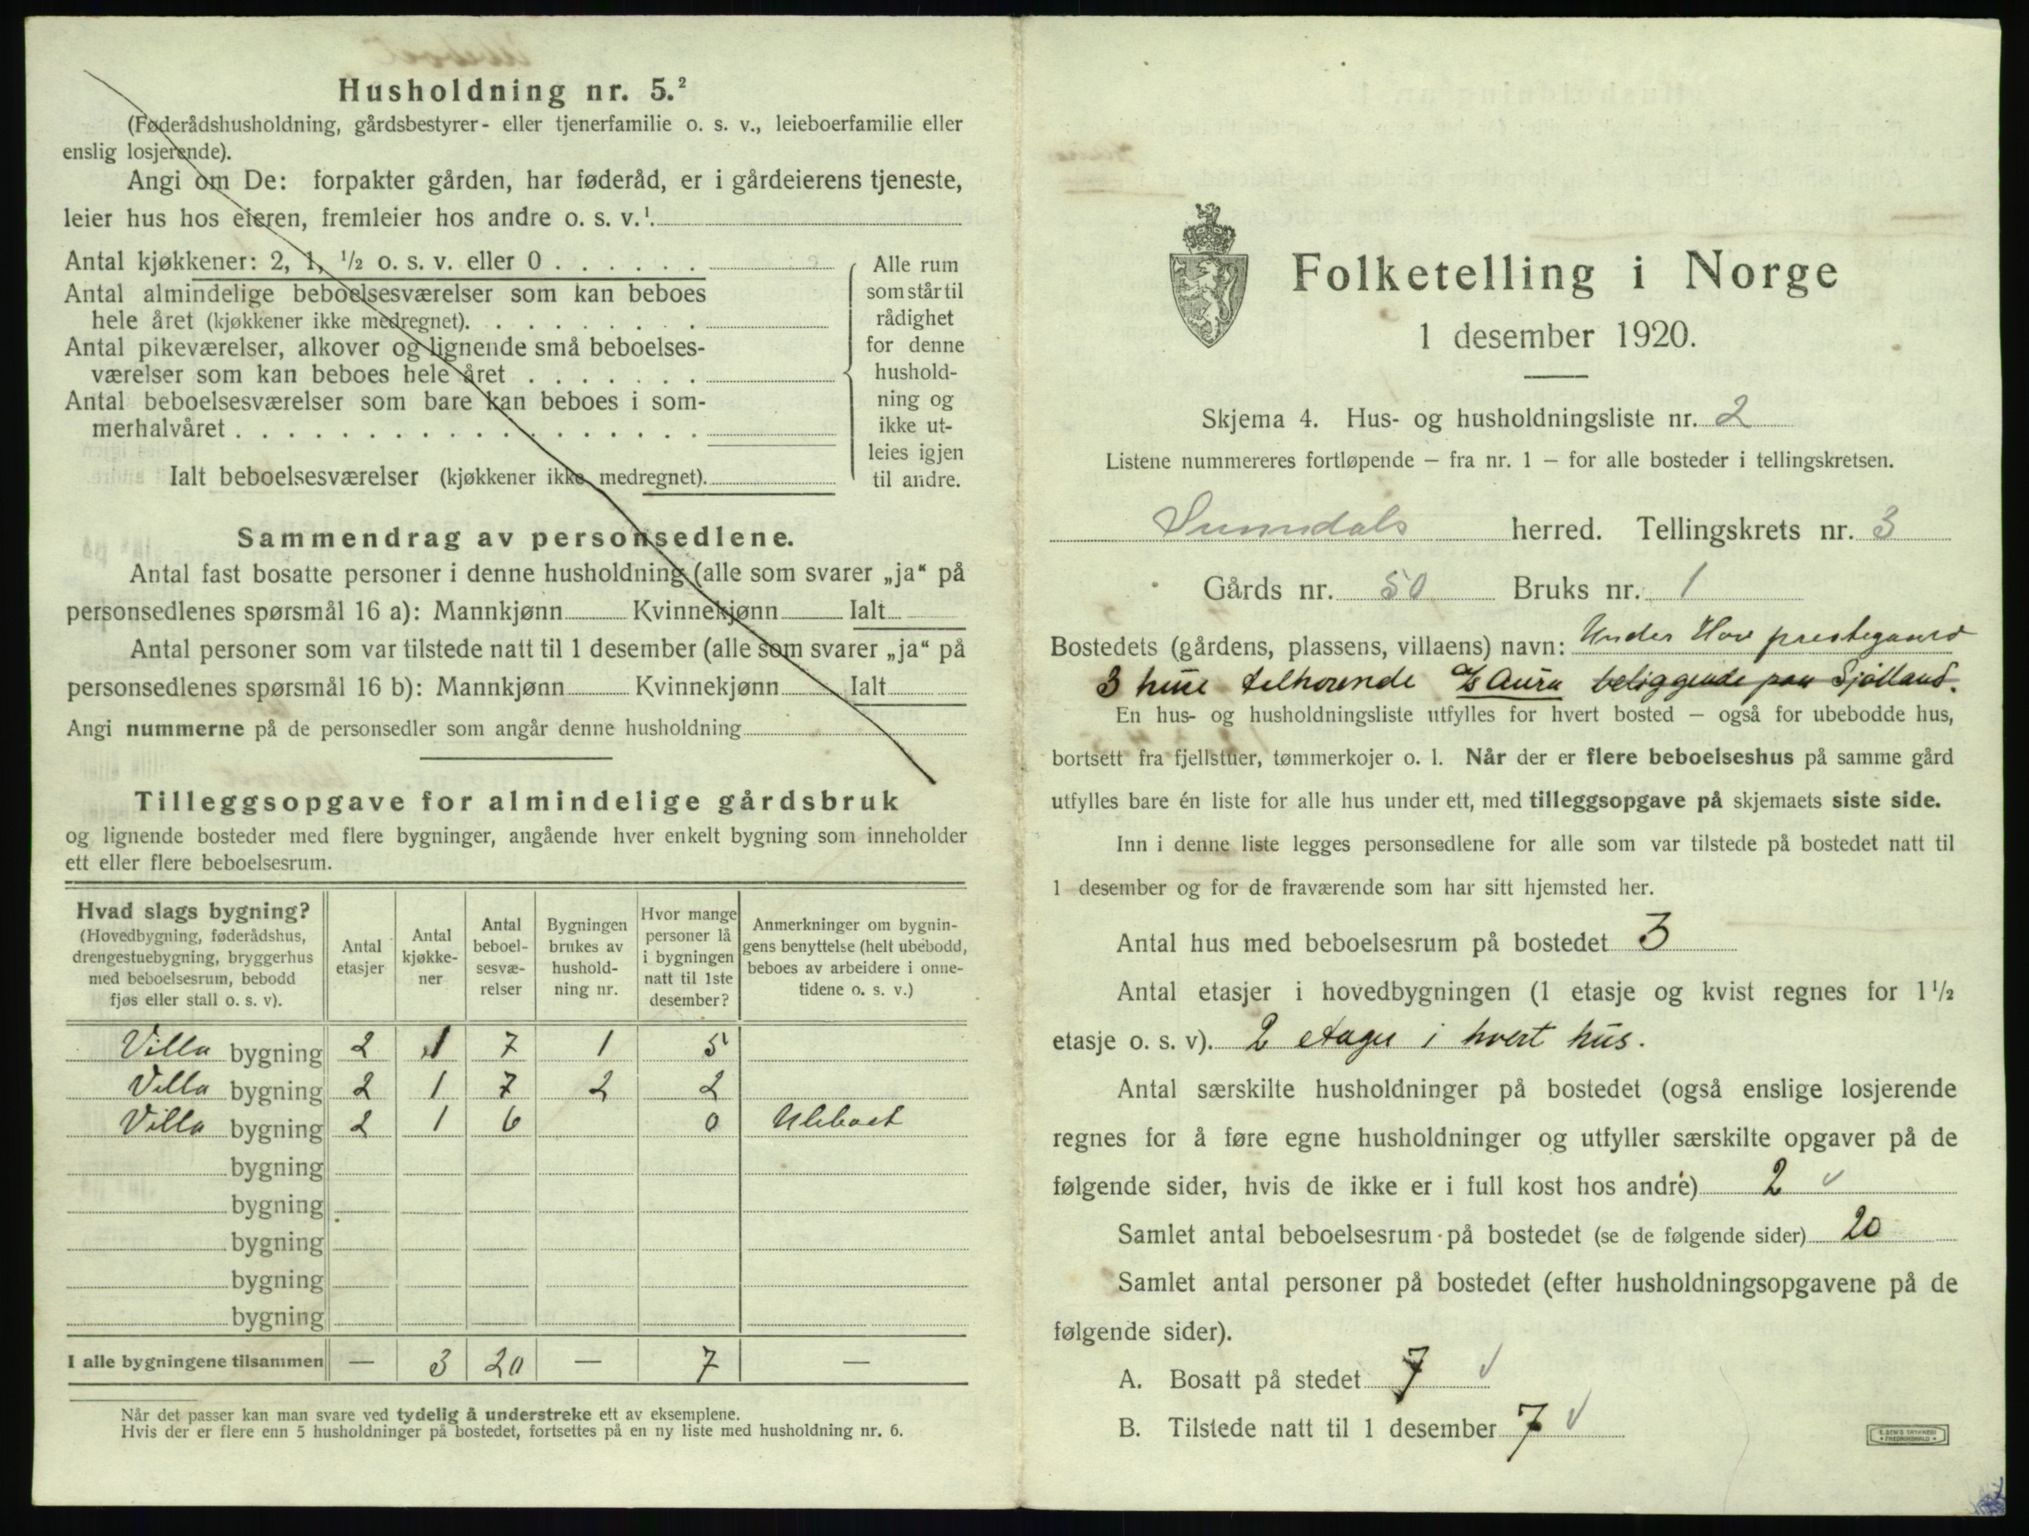 Husholdning nr. 5.²
(Føderådshusholdning, gårdsbestyrer- eller tjenerfamilie o. s. v., leieboerfamilie eller
enslig losjerende).
Angi om De: forpakter gården, har føderåd, er i gårdeierens tjeneste,
leier hus hos eieren, fremleier hos andre o. s. v.¹
Antal kjøkkener: 2, 1, ½ o. s. v. eller 0 . . . . . .
Antal almindelige beboelsesværelser som kan beboes
hele året (kjøkkener ikke medregnet). . . . . . . . .
Antal pikeværelser, alkover og lignende små beboelses-
værelser som kan beboes hele året . . . . . . .
Antal beboelsesværelser som bare kan beboes i som-
merhalvåret . . . . . . . . . . . . . . . . . .
Ialt beboelsesværelser (kjøkkener ikke medregnet).
Alle rum
som står til
rådighet
for denne
hushold-
ning og
ikke ut-
leies igjen
til andre.
Sammendrag av personsedlene.
Antal fast bosatte personer i denne husholdning (alle som svarer „ja“ på
personsedlenes spørsmål 16 a): Mannkjønn Kvinnekjønn Ialt
Antal personer som var tilstede natt til 1 desember (alle som svarer „ja“ på
personsedlenes spørsmål 16 b): Mannkjønn Kvinnekjønn Ialt
Angi nummerne på de personsedler som angår denne husholdning
Tilleggsopgave for almindelige gårdsbruk
og lignende bosteder med flere bygninger, angående hver enkelt bygning som inneholder
ett eller flere beboelsesrum.
Hvad slags bygning?
(Hovedbygning, føderådshus,
drengestuebygning, bryggerhus
med beboelsesrum, bebodd
fjøs eller stall o. s. v).
Antal
etasjer
Antal
kjøkke-
ner
Antal
beboel-
sesvæ-
relser
Bygningen
brukes av
hushold-
ning nr.
Hvor mange
personer lå
i bygningen
natt til 1ste
desember?
Anmerkninger om bygnin-
gens benyttelse (helt ubebodd,
beboes av arbeidere i onne-
tidene o. s. v.)
Villa bygning 2 1 7 1 5
Villa bygning 2 1 7 2 2
Villa bygning 2 1 6 0 Uleboet
bygning
bygning
bygning
bygning
bygning
I alle bygningene tilsammen — 3 20 — 7 —
Når det passer kan man svare ved tydelig å understreke ett av eksemplene.
Hvis der er flere enn 5 husholdninger på bostedet, fortsettes på en ny liste med husholdning nr. 6.
Folketelling i Norge
1 desember 1920.
Skjema 4. Hus- og husholdningsliste nr. 2
Listene nummereres fortløpende – fra nr. 1 – for alle bosteder i tellingskretsen.
Sunndals herred. Tellingskrets nr. 3
Gårds nr. 50 Bruks nr. 1
Bostedets (gårdens, plassens, villaens) navn: Under Hov prestegaard
3 huse tilhørende A/S Aura beliggende paa Sjølland.
En hus- og husholdningsliste utfylles for hvert bosted – også for ubebodde hus,
bortsett fra fjellstuer, tømmerkojer o. l. Når der er flere beboelseshus på samme gård
utfylles bare én liste for alle hus under ett, med tilleggsopgave på skjemaets siste side.
Inn i denne liste legges personsedlene for alle som var tilstede på bostedet natt til
1 desember og for de fraværende som har sitt hjemsted her.
Antal hus med beboelsesrum på bostedet 3
Antal etasjer i hovedbygningen (1 etasje og kvist regnes for 1½
etasje o. s. v). 2 etager i hvert hus.
Antal særskilte husholdninger på bostedet (også enslige losjerende
regnes for å føre egne husholdninger og utfyller særskilte opgaver på de
følgende sider, hvis de ikke er i full kost hos andre) 2
Samlet antal beboelsesrum på bostedet (se de følgende sider) 20
Samlet antal personer på bostedet (efter husholdningsopgavene på de
følgende sider).
A. Bosatt på stedet 7
B. Tilstede natt til 1 desember 7